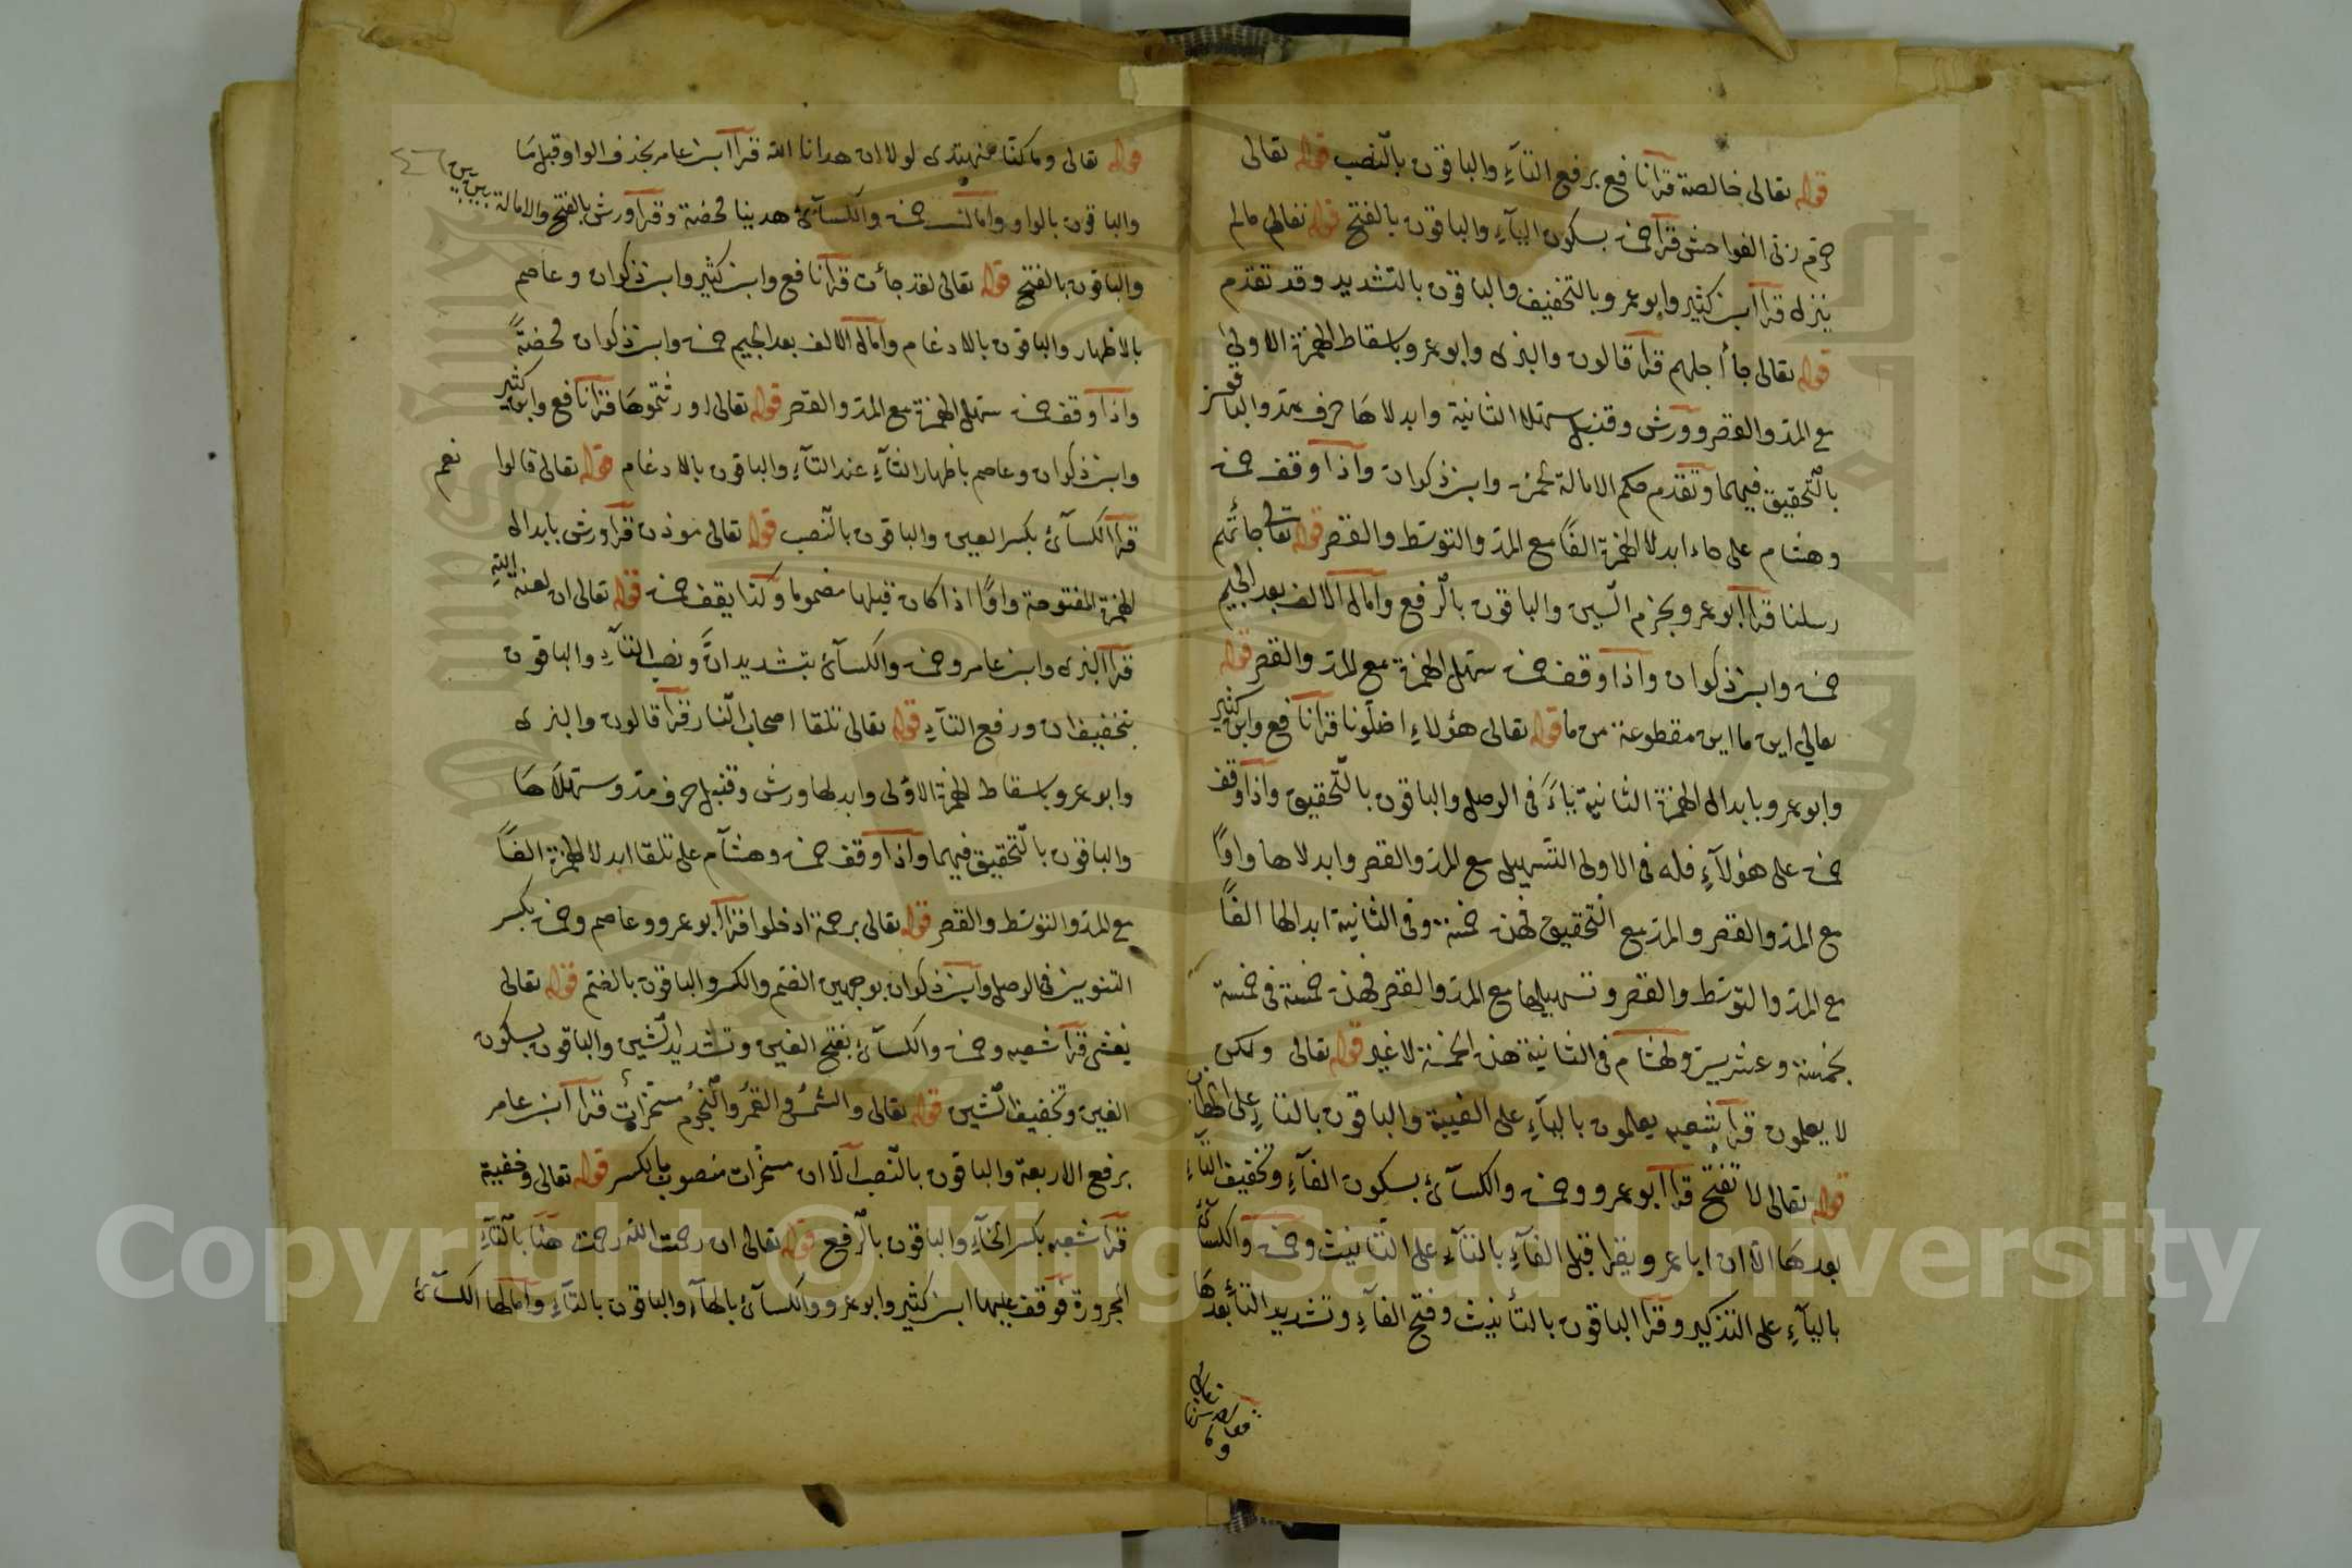 قوله تعالى خالصة قرأ نافع برفع التآء والباقون بالنصب قوله تعالى
حرم ربى الفواحش قرأ حمزه بسكون اليآء والباقون بالفتح قوله تعالى مالم
ينزل قرأ ابن كثير وابو عمرو بالتخفيف والباقون بالتشديد وقد تقدم
قوله تعالى جأ أجلهم قرأ قالون والبزى وابو عمرو باسقاط الهمزة الاولى
مع المد والقصر وورش وقنبل سهلا الثانية وابدلاها حرف مد والباقون
بالتحقيق فيهما وتقدم حكم الامالة لحمزه وابن ذكوان واذا وقف حمزه
وهشام على جاء ابدلا الهمزة الفًا مع المد والتوسط والقصر قوله تعالى جائتهم
رسلنا قرأ ابو عمرو بجزم السين والباقون بالرفع وامال الالف بعد الجيم
حمزه وابن ذكوان واذا وقف حمزه سهل الهمزة مع المد والقصر قوله
تعالي اين ما اين مقطوعة من ما قوله تعالى هؤلاءِ اضلونا قرأ نافع وابن كثير
وابو عمرو بابدال الهمزة الثانية ياءً فى الوصل والباقون بالتحقيق واذا وقف
حمزه على هؤلآءِ فله فى الاولى التسهيل مع المد والقصر وابدلاها واوًا
مع المد والقصر والمد مع التحقيق فهذه خمسة وفى الثانية ابدالها الفًا
مع المد والتوسط والقصر وتسهيلها مع المد والقصر فهذه خمسة فى خمسة
بخمسة وعشرين ولهشام فى الثانية هذه الخمسة لاغير قوله تعالى ولكن
لا يعلمون قرأ شعبه يعلمون باليآءِ على الغيبة والباقون بالتاءِ على الخطاب
قوله تعالى لا تفتح قرأ ابو عمرو وحمزه والكسآئى بسكون الفآءِ وتخفيف التآءِ
بعدها الا ان ابا عمرو يقرا قبل الفآءِ بالتآءِ على التأنيث وحمزه والكسائى
باليآءِ على التذكير وقرأ الباقون بالتأنيث وفتح الفآءِ وتشديد التأ بعدها
قوله تعالى وما كنا لنهتدى لولا ان هدانا الله قرأ ابن عامر بحذف الواو قبل ما
والباقون بالواو وامال حمزه والكسآئى هدينا محضة وقرأ ورش بالفتح والامالة بين بين
والباقون بالفتح قوله تعالى لقد جأت قرأ نافع وابن كثير وابن ذكوان وعاصم
بالاظهار والباقون بالادغام وامال الالف بعد الجيم حمزه وابن ذكوان محضةً
واذا وقف حمزه سهل الهمزة مع المد والقصر قوله تعالى اورثتموها قرأ نافع وابن كثير
وابن ذكوان وعاصم باظهار الثآءِ عند التآءِ والباقون بالادغام قوله تعالى قالوا نعم
قرأ الكسآئى بكسر العين والباقون بالنصب قوله تعالى موذن قرأ ورش بابدال
الهمزة المفتوحة واوًا اذا كان قبلها مضموما وكذا يقف حمزه قوله تعالى ان لعنة الله
قرأ البزى وابن عامر وحمزه والكسآئى بتشديد انَّ ونصب التآءِ والباقون
بتخفيف ان ورفع التآءِ قوله تعالى تلقا اصحاب النار قرأ قالون والبزى
وابو عمرو باسقاط الهمزة الاولى وابدلها ورش وقنبل حرف مد وسهلاها
والباقون بالتحقيق فيهما واذا وقف حمزه وهشآم على تلقا ابدلا الهمزة الفًا
مع المد والتوسط والقصر قوله تعالى برحمة ادخلوا قرأ ابو عمرو وعاصم وحمزه بكسر
التنوين فى الوصل وابن ذكوان بوجهين الضم والكسر والباقون بالضم قوله تعالى
يغشى قرأ شعبه وحمزه والكسآئى بفتح الغين وتشديد الشين والباقون بسكون
الغين وتخفيف الشين قوله تعالى والشمسُ والقمرُ والنجومُ مسخراتٌ قرأ ابن عامر
برفع الاربعة والباقون بالنصب الا ان مسخرات منصوب بالكسر قوله تعالى وخفية
قرأ شعبه بكسر الخآءِ والباقون بالرفع قوله تعالى ان رحمت الله رحمت هنا بالتآءِ
المجرورة فوقف عليها ابن كثير وابو عمرو والكسآئى بالهآء والباقون بالتآءِ وامالها الكسآئى
Copyright © King Saud University